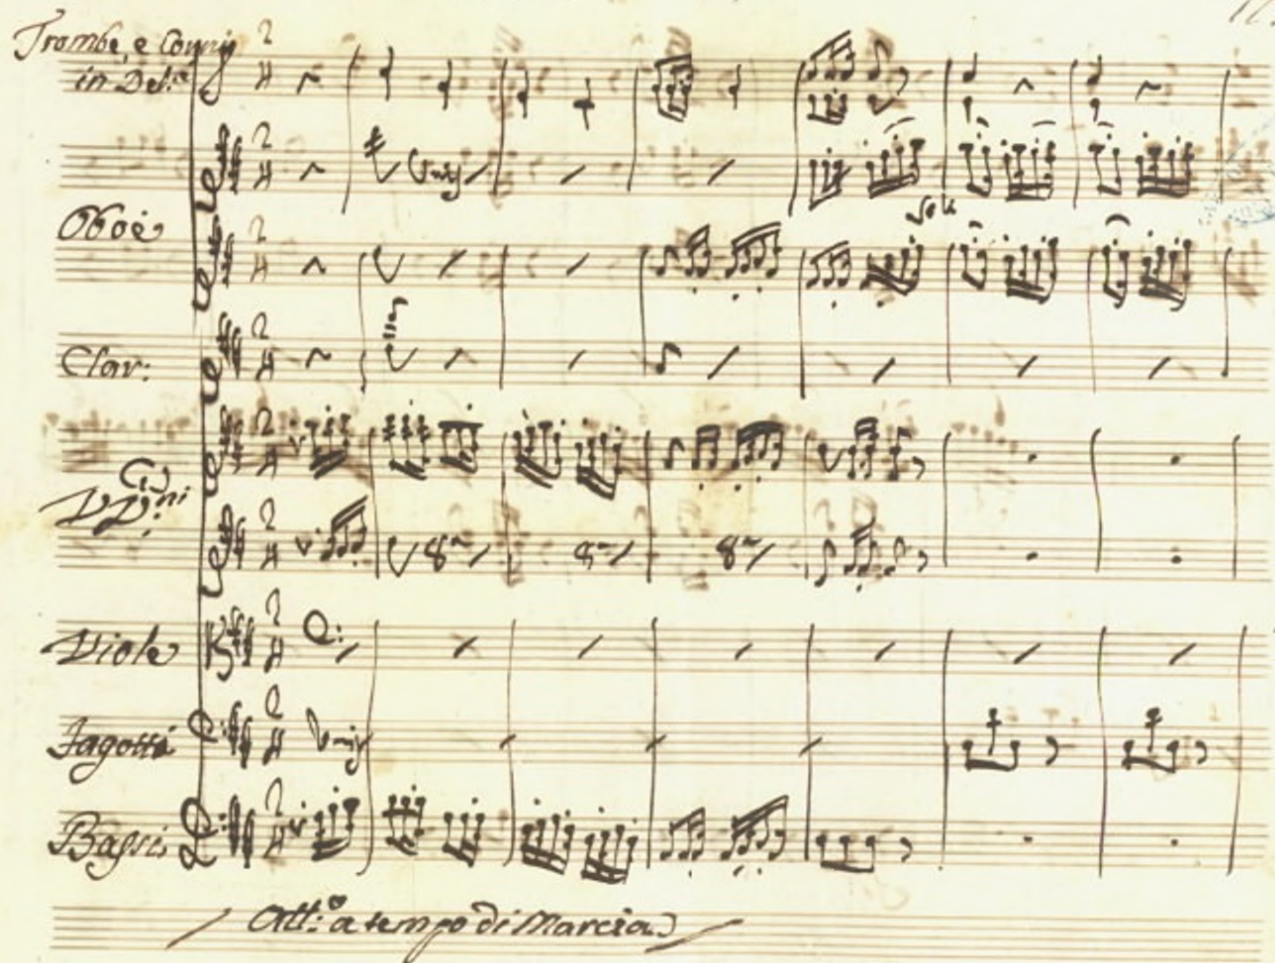 Trombe, e Corni
in Del.ª
Oboè
Soli
Clar:
VV.ni
Viole
Fagotti
Bassi
All:º a tempo di Marcia